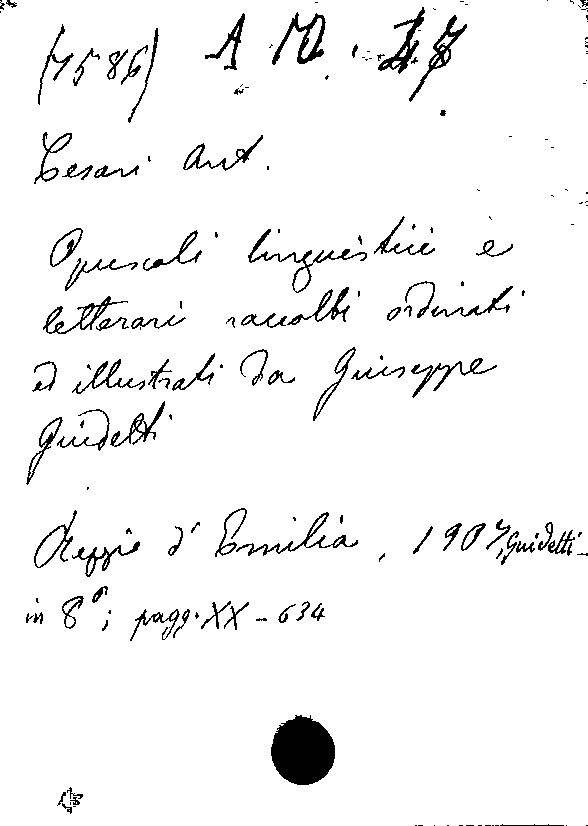 (7586) A IV.
Cesari Ant.
Opuscoli linguistici e
letterari raccolti ordinati
ed illustrati da Giuseppe
Guidetti
Reggio d'Emilia, 1907, Guidetti
in 8°; pagg. XX - 634